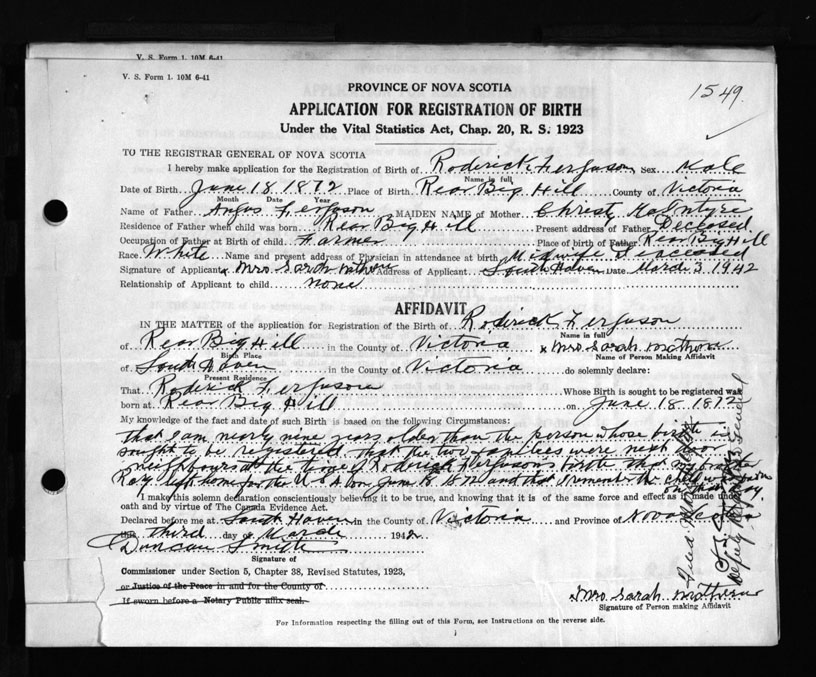 V. S. Form 1. 10M 6-41
V. S. Form 1. 10M 6-41
1549
PROVINCE OF NOVA SCOTIA
APPLICATION FOR REGISTRATION OF BIRTH
Under the Vital Statistics Act, Chap. 20, R. S. 1923
TO THE REGISTRAR GENERAL OF NOVA SCOTIA
I hereby make application for the Registration of Birth of Roderick Ferguson Sex Male
Name in full
Date of Birth June 18 1872 Place of Birth Rear Big Hill County of Victoria
Month Date Year
Name of Father Angus Ferguson MAIDEN NAME of Mother Christy MacIntyre
Residence of Father when child was born Rear Big Hill Present address of Father Deceased
Occupation of Father at Birth of child Farmer Place of birth of Father Rear Big Hill
Race White Name and present address of Physician in attendance at birth Midwife Deceased
Signature of Applicant x Mrs Sarah Address of Applicant South Haven Date March 3 1942
Relationship of Applicant to child none
AFFIDAVIT
IN THE MATTER of the application for Registration of the Birth of Roderick Ferguson
Name in full
of Rear Big Hill in the County of Victoria x Mrs Sarah
Birth Place Name of Person Making Affidavit
of South Haven in the County of Victoria do solemnly declare:
Present Residence
That Roderick Ferguson Whose Birth is sought to be registered was
born at Rear Big Hill on June 18 1872
My knowledge of the fact and date of such Birth is based on the following Circumstances:
that I am nearly nine years older than the person whose birth is
sought to be registered, that the two families were next door
neighbours at the time of Roderick Ferguson's birth that my brother
Rory left home for the U S A on June 18 1872 and that I remember the child was born
that day
I make this solemn declaration conscientiously believing it to be true, and knowing that it is of the same force and effect as if made under
oath and by virtue of The Canada Evidence Act.
Declared before me at South Haven in the County of Victoria and Province of Nova Scotia
this third day of March 1942
Duncan Smith
Signature of
Commissioner under Section 5, Chapter 38, Revised Statutes, 1923,
or Justice of the Peace in and for the County of
If sworn before a Notary Public affix seal.
x Mrs Sarah
Signature of Person making Affidavit
For Information respecting the filling out of this Form, see Instructions on the reverse side.
Filed
Deputy